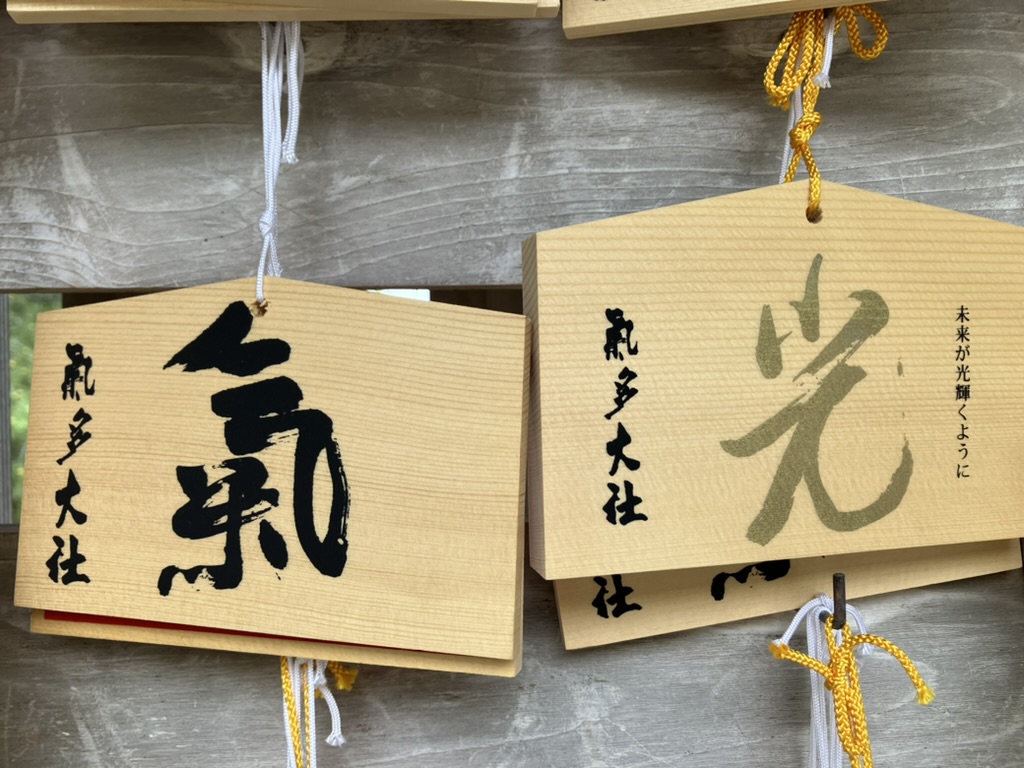 氣
氣多大社
未来が光輝くように
光
氣多大社
社